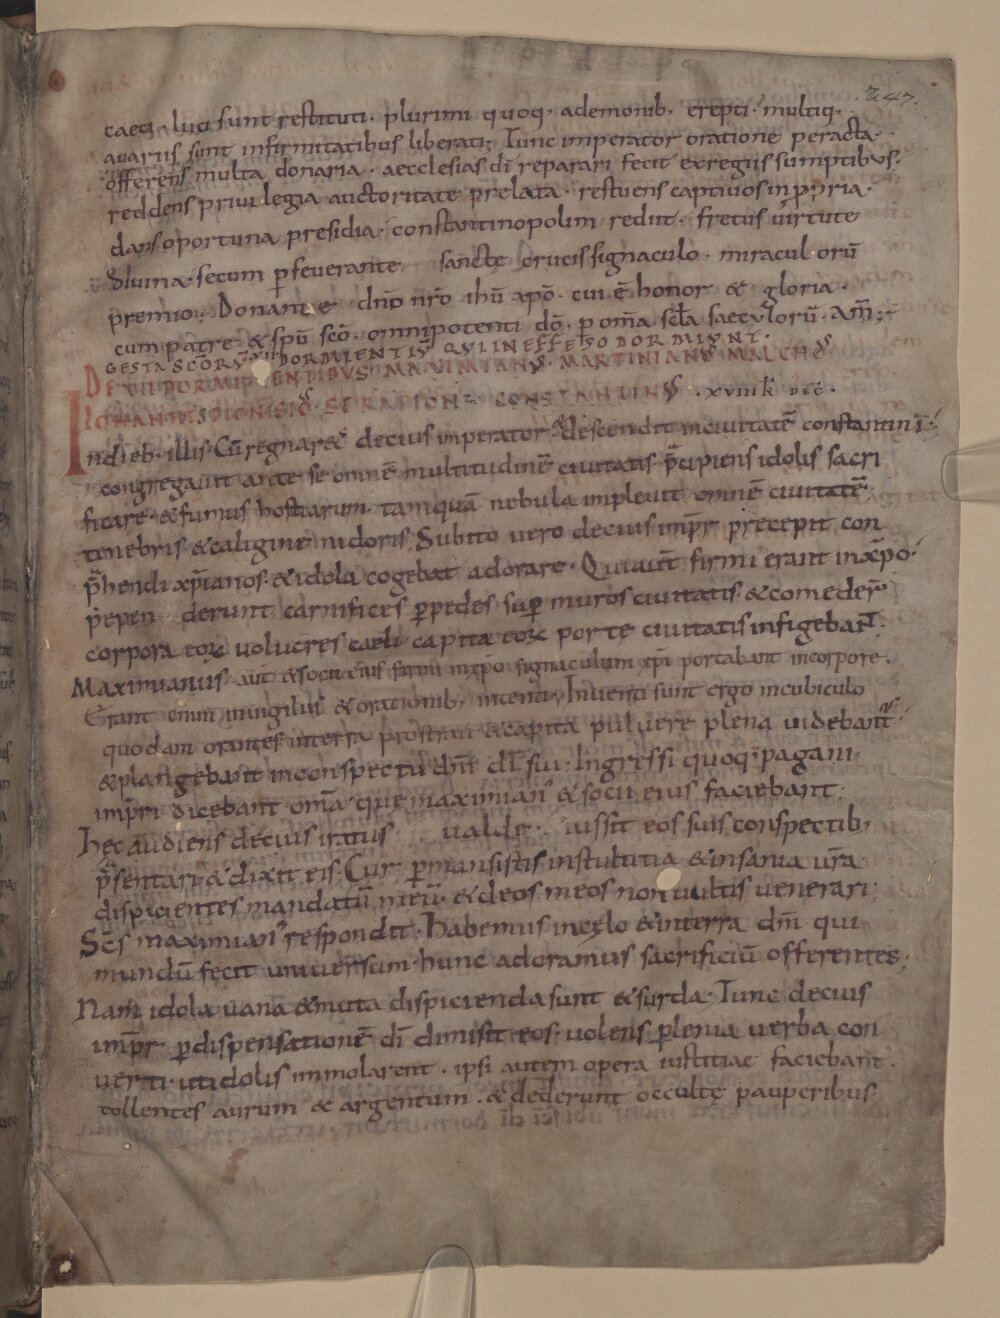 247.
caeci luci sunt restituti · plurimi quoq; ademonib; erepti · multiq;
auariis sunt infirmitatibus liberati; Tunc imperator oratione peracta·
offerens multa donaria · aecclesias dī reparari fecit exregiis sumptibus·
reddens priuilegia auctoritate prelata · restuens captiuos inppria·
dans oportuna presidia · constantinopolim rediit · fretus uirtute
diuina · secum pseuerante sancte crucis signaculo · miraculorū
premio; Donante dn̄o nr̄o ihū xpō · cui ē honor & gloria·
cum patre & spū sc̄o · omnipotenti dō · p om̄a scl̄a saeculorū · am̄;
GESTA SCŌRŪ VII DORMIENTIŪ QVI IN EFFESO DORMIVNT·
DE VII DORMIENTIBVS · MAXIMIANVS MARTINIANVS MALCHVS
IOHANNIS DIONISIVS · SERAPION CONSTANTINVS · xviiii k
Indieb; illis · Cū regnar& decius imperator · & descendit inciuitatē constantini
congregauit ante se omnē multitudinē ciuitatis p̄cipiens idolis sacri
ficare · & fumus hostiarum tamquā nebula impleuit omnē ciuitatē·
tenebris & caligine nidoris; Subito uero decius imp̄r precepit con
p̄hendi xp̄ianos · & idola cogebat adorare · Qui aut̄ firmi erant inxp̄o·
pepen derunt carnifices p pedes sup muros ciuitatis · & comeder̄
corpora eoꝝ uolucres caeli capita eoꝝ porte ciuitatis infigebant·
Maximianus aut̄ & socii eius firmi inxp̄o signaculum xp̄i portabant incorpore·
Erant enim inuigiliis & orationib; intenti; Inuenti sunt ergo incubiculo
quodam orantes interra prostrati & capita puluere plena uidebant
& plangebant inconspectu dn̄i dī sui · Ingressi quoq; pagani
imp̄ri dicebant om̄a que maximian' & socii eius faciebant;
Hec audiens decius iratus ualde · iussit eos suis conspectib;
p̄sentari & dixit eis · Cur pmansistis instultitia & insania ur̄a
dispicientes mandatū meū · & deos meos non uultis uenerari;
Sc̄s maximian' respondit · Habemus incęlo & interra dn̄i qui
mundū fecit uniuersum · hunc adoramus sacrificiū offerentes;
Nam idola uana & muta dispicienda sunt & surda · Tunc decius
imp̄r p dispensationē dī dimisit eos · uolens p lenia uerba con
uerti · ut idolis immolarent · ipsi autem opera iustitiae faciebant·
tollentes aurum & argentum · & dederunt occulte pauperibus